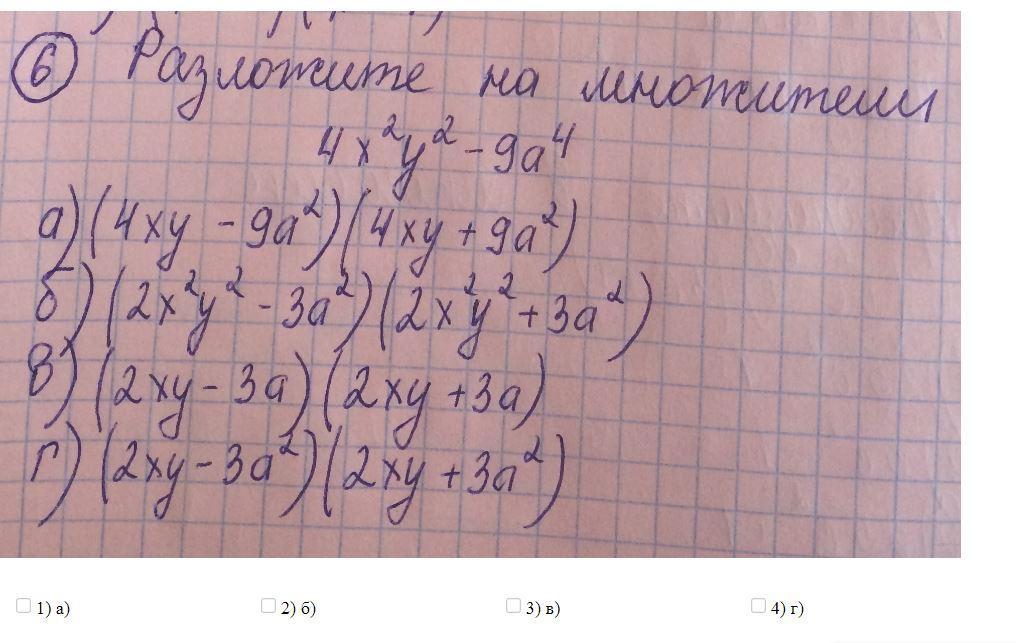 6 Разложите на множители
4x²y² - 9a⁴
а) (4xy - 9a²)(4xy + 9a²)
б) (2x²y² - 3a²)(2x²y² + 3a²)
в) (2xy - 3a)(2xy + 3a)
г) (2xy - 3a²)(2xy + 3a²)
1) а) 2) б) 3) в) 4) г)